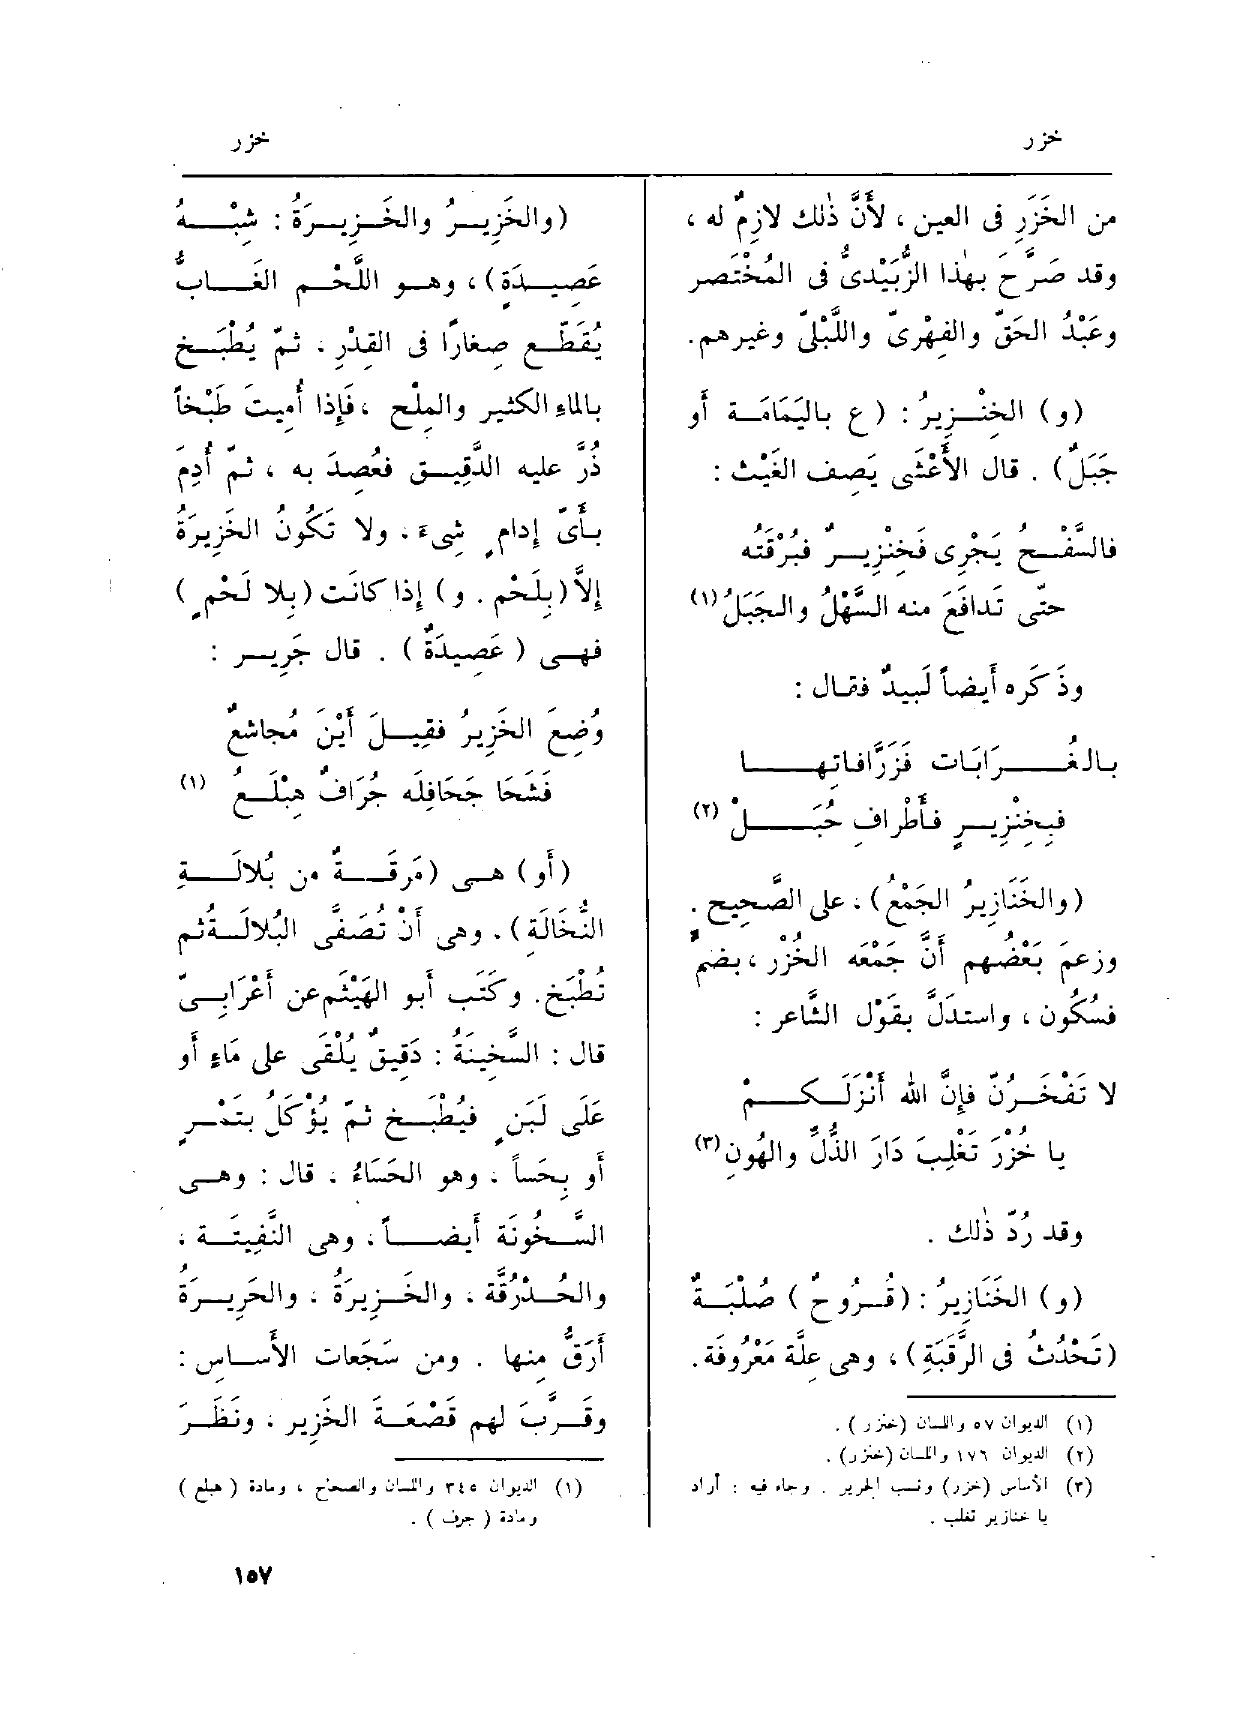 خزر
خزر
من الخَزَرِ فى العين ، لأَنَّ ذٰلك لازِمٌ له ،
وقد صَرَّحَ بهٰذا الزُّبَيْدىُّ فى المُخْتَصر
وعَبْدُ الحَقّ والفِهْرىّ واللَّبْلىّ وغيرهم.
(و) الخِنْزِيرُ : (ع باليَمَامَة أَو
جَبَلٌ) . قال الأَعْشَى يَصِف الغَيْث :
فالسَّفْحُ يَجْرِى فخِنْزِيرٌ فبُرْقَتُه
حتّى تَدافَعَ منه السَّهْلُ والجَبَلُ (١)
وذَكره أَيضاً لَبِيدٌ فقال :
بالغُرَابَات فَزَرَّافاتِها
فبِخِنْزِيرٍ فأَطْرافِ حُبَلْ (٢)
(والخَنَازِيرُ الجَمْعُ) ، على الصَّحِيح .
وزعمَ بَعْضُهم أَنَّ جَمْعَه الخُزْر ، بضمٍّ
فسُكُون ، واستدَلَّ بقَوْل الشَّاعر :
لا تَفْخَرُنّ فإِنَّ الله أَنْزَلَكمْ
يا خُزْرَ تَغْلِبَ دَارَ الذُّلِّ والهُونِ (٣)
وقد رُدّ ذٰلك .
(و) الخَنَازِيرُ : (قُرُوحٌ) صُلْبَةٌ
(تَحْدُثُ فى الرَّقَبَةِ) ، وهى عِلَّة مَعْرُوفَة.
(١) الديوان ٥٧ واللسان (خنزر) .
(٢) الديوان ١٧٦ واللسان (خنزر) .
(٣) الأساس (خزر) ونسب لجرير . وجاء فيه : أراد
يا خنازير تغلب .
(والخَزِيرُ والخَزِيرَةُ : شِبْهُ
عَصِيدَةٍ) ، وهو اللَّحْم الغَابُّ
يُقَطَّع صِغارًا فى القِدْرِ ، ثمّ يُطْبَخ
بالماءِ الكثير والمِلْح ، فَإِذا أُمِيتَ طَبْخاً
ذُرَّ عليه الدَّقِيق فعُصِدَ به ، ثمّ أُدِمَ
بأَىّ إِدامٍ شِىءَ ، ولا تَكُونُ الخَزِيرَةُ
إِلاَّ (بِلَحْم . و) إِذا كانَت (بِلا لَحْمٍ)
فهى (عَصِيدَةٌ) . قال جَرِير :
وُضِعَ الخَزِيرُ فقِيلَ أَيْنَ مُجاشعٌ
فَشَحَا جَحَافِلَه جُرَافٌ هِبْلَعُ (١)
(أَو) هى (مَرقَةٌ من بُلالَةِ
النُّخَالَة) . وهى أَنْ تُصَفَّى البُلالَةُ ثم
تُطْبَخ. وكَتَب أَبو الهَيْثَم عن أَعْرَابِىّ
قال : السَّخِينَةُ : دَقِيقٌ يُلْقَى على مَاءٍ أَو
عَلَى لَبَنٍ فيُطْبَخ ثمّ يُؤْكَلُ بتَمْرٍ
أَو بِحَساً ، وهو الحَسَاءُ ، قال : وهى
السَّخُونَة أَيضاً ، وهى النَّفِيتَة ،
والحُدْرُقَّة ، والخَزِيرَةُ ، والحَرِيرَةُ
أَرَقُّ مِنها . ومن سَجَعات الأَساس :
وقَرَّبَ لهم قَصْعَةَ الخَزِير ، ونَظَرَ
(١) الديوان ٣٤٥ واللسان والصحاح ، ومادة (هبلع)
ومادة (جرف) .
١٥٧